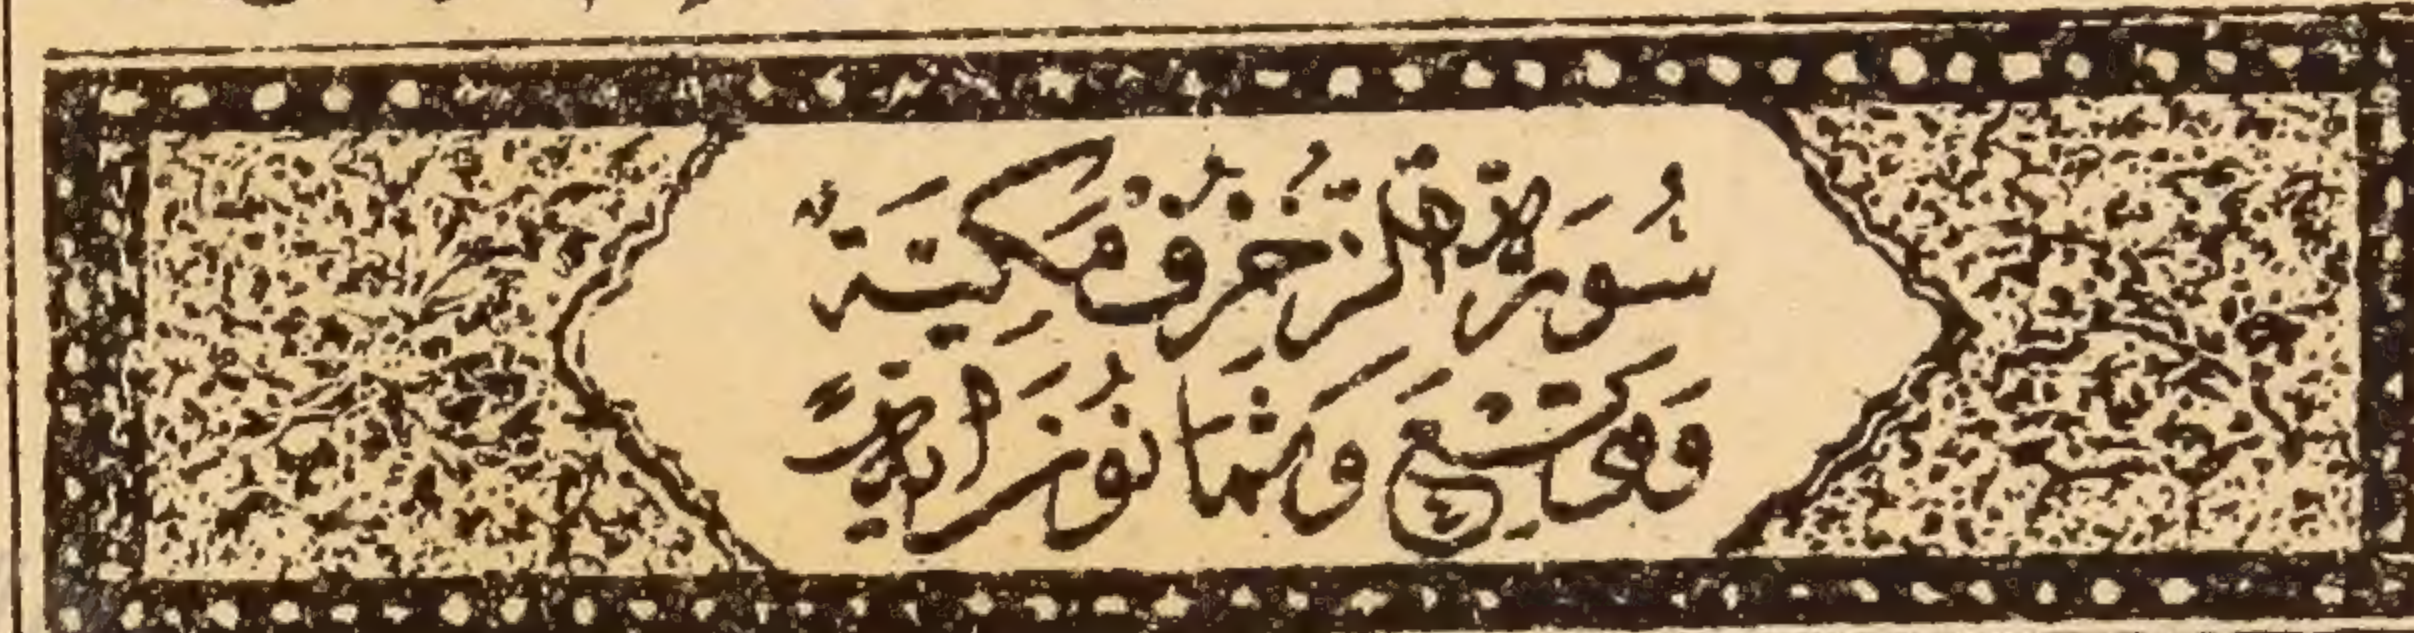 سُورَةُ الزُّخْرُفِ مَكِّيَّةٌ
وَهِيَ تِسْعٌ وَثَمَانُونَ اٰيَةً